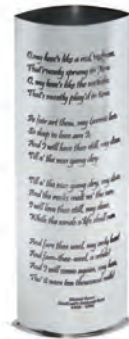 O, my luve's like a red, red rose,
That's newly sprung in June:
O, my luve's like the melodie,
That's sweetly play'd in tune.
As fair art thou, my bonnie lass,
So deep in luve am I:
And I will luve thee still, my dear,
Till a' the seas gang dry.
Till a' the seas gang dry, my dear,
And the rocks melt wi' the sun:
I will luve thee still, my dear,
While the sands o' life shall run.
And fare thee weel, my only luve!
And fare thee weel, a while!
And I will come again, my luve,
Tho' it were ten thousand mile!
Robert Burns